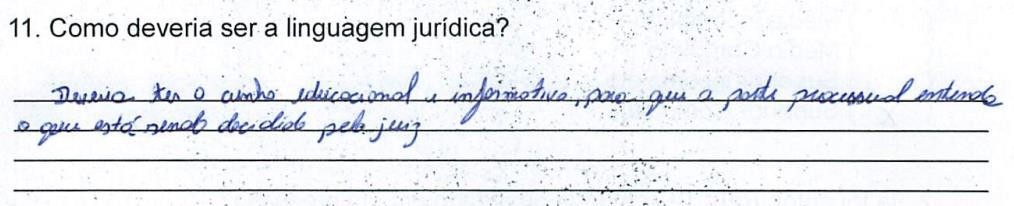 11. Como deveria ser a linguagem jurídica?
Deveria ter o cunho educacional e informativo, para que a parte processual entenda
o que está sendo decidido pelo juiz